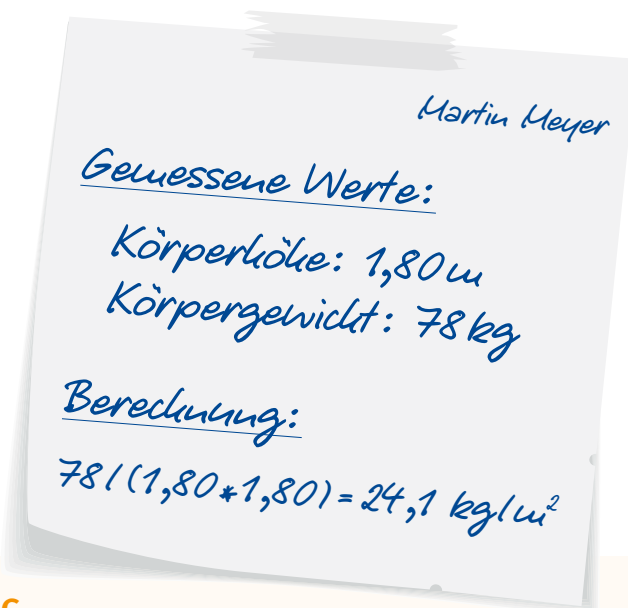 Martin Meyer
Gemessene Werte:
Körperhöhe: 1,80 m
Körpergewicht: 78 kg
Berechnung:
78 / (1,80 * 1,80) = 24,1 kg/m²